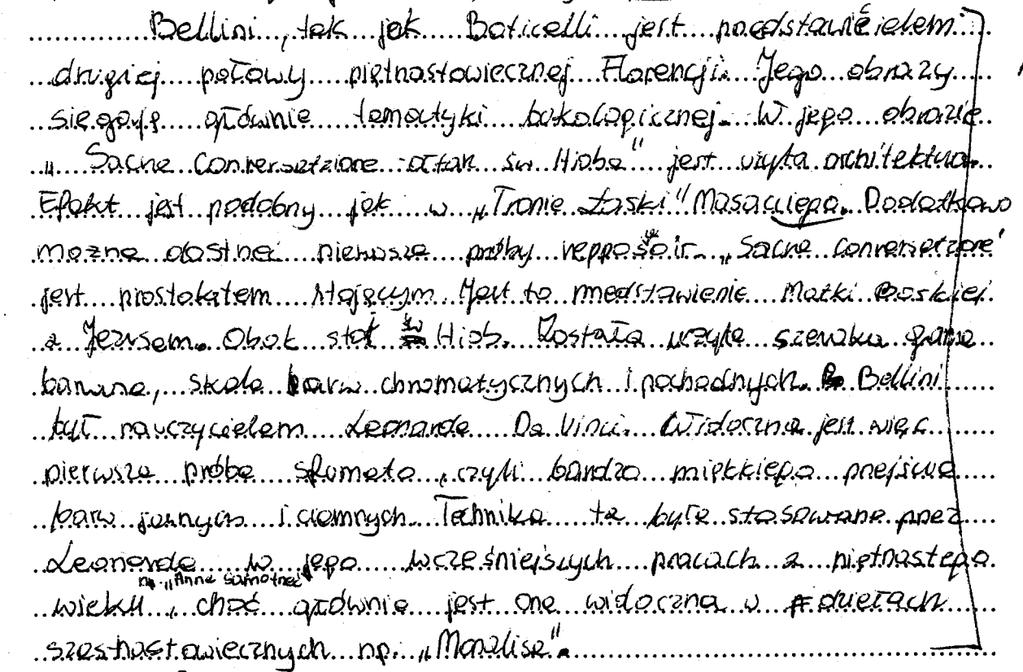 Bellini, tak jak Boticelli jest przedstawicielem
drugiej połowy piętnastowiecznej Florencji. Jego obrazy
sięgają głównie tematyki bukologicznej. W jego obrazie
„Sacne Conversatzione ołtarz św Hioba" jest użyta architektura.
Efekt jest podobny jak w „Tronie Łaski" Masacciego. Dodatkowo
można dostrzec pierwsze próby „Sacne Conversatzione"
jest prostokątem stojącym. Jest to przedstawienie Matki Boskiej
z Jezusem. Obok stoi św Hiob. Została użyta szeroka gama
barwna, skala barw chromatycznych i pochodnych. Bellini
był nauczycielem Leonarda Da Vinci. Widoczna jest więc
pierwsza próba sfumato, czyli bardzo miękkiego przejścia
barw jasnych i ciemnych. Technika ta była stosowana przez
Leonarda w jego wcześniejszych pracach z piętnastego
np. „Anna Samotrzeć"
wieku, choć głównie jest one widoczna w dziełach
szesnastowiecznych np. „Monalisa".